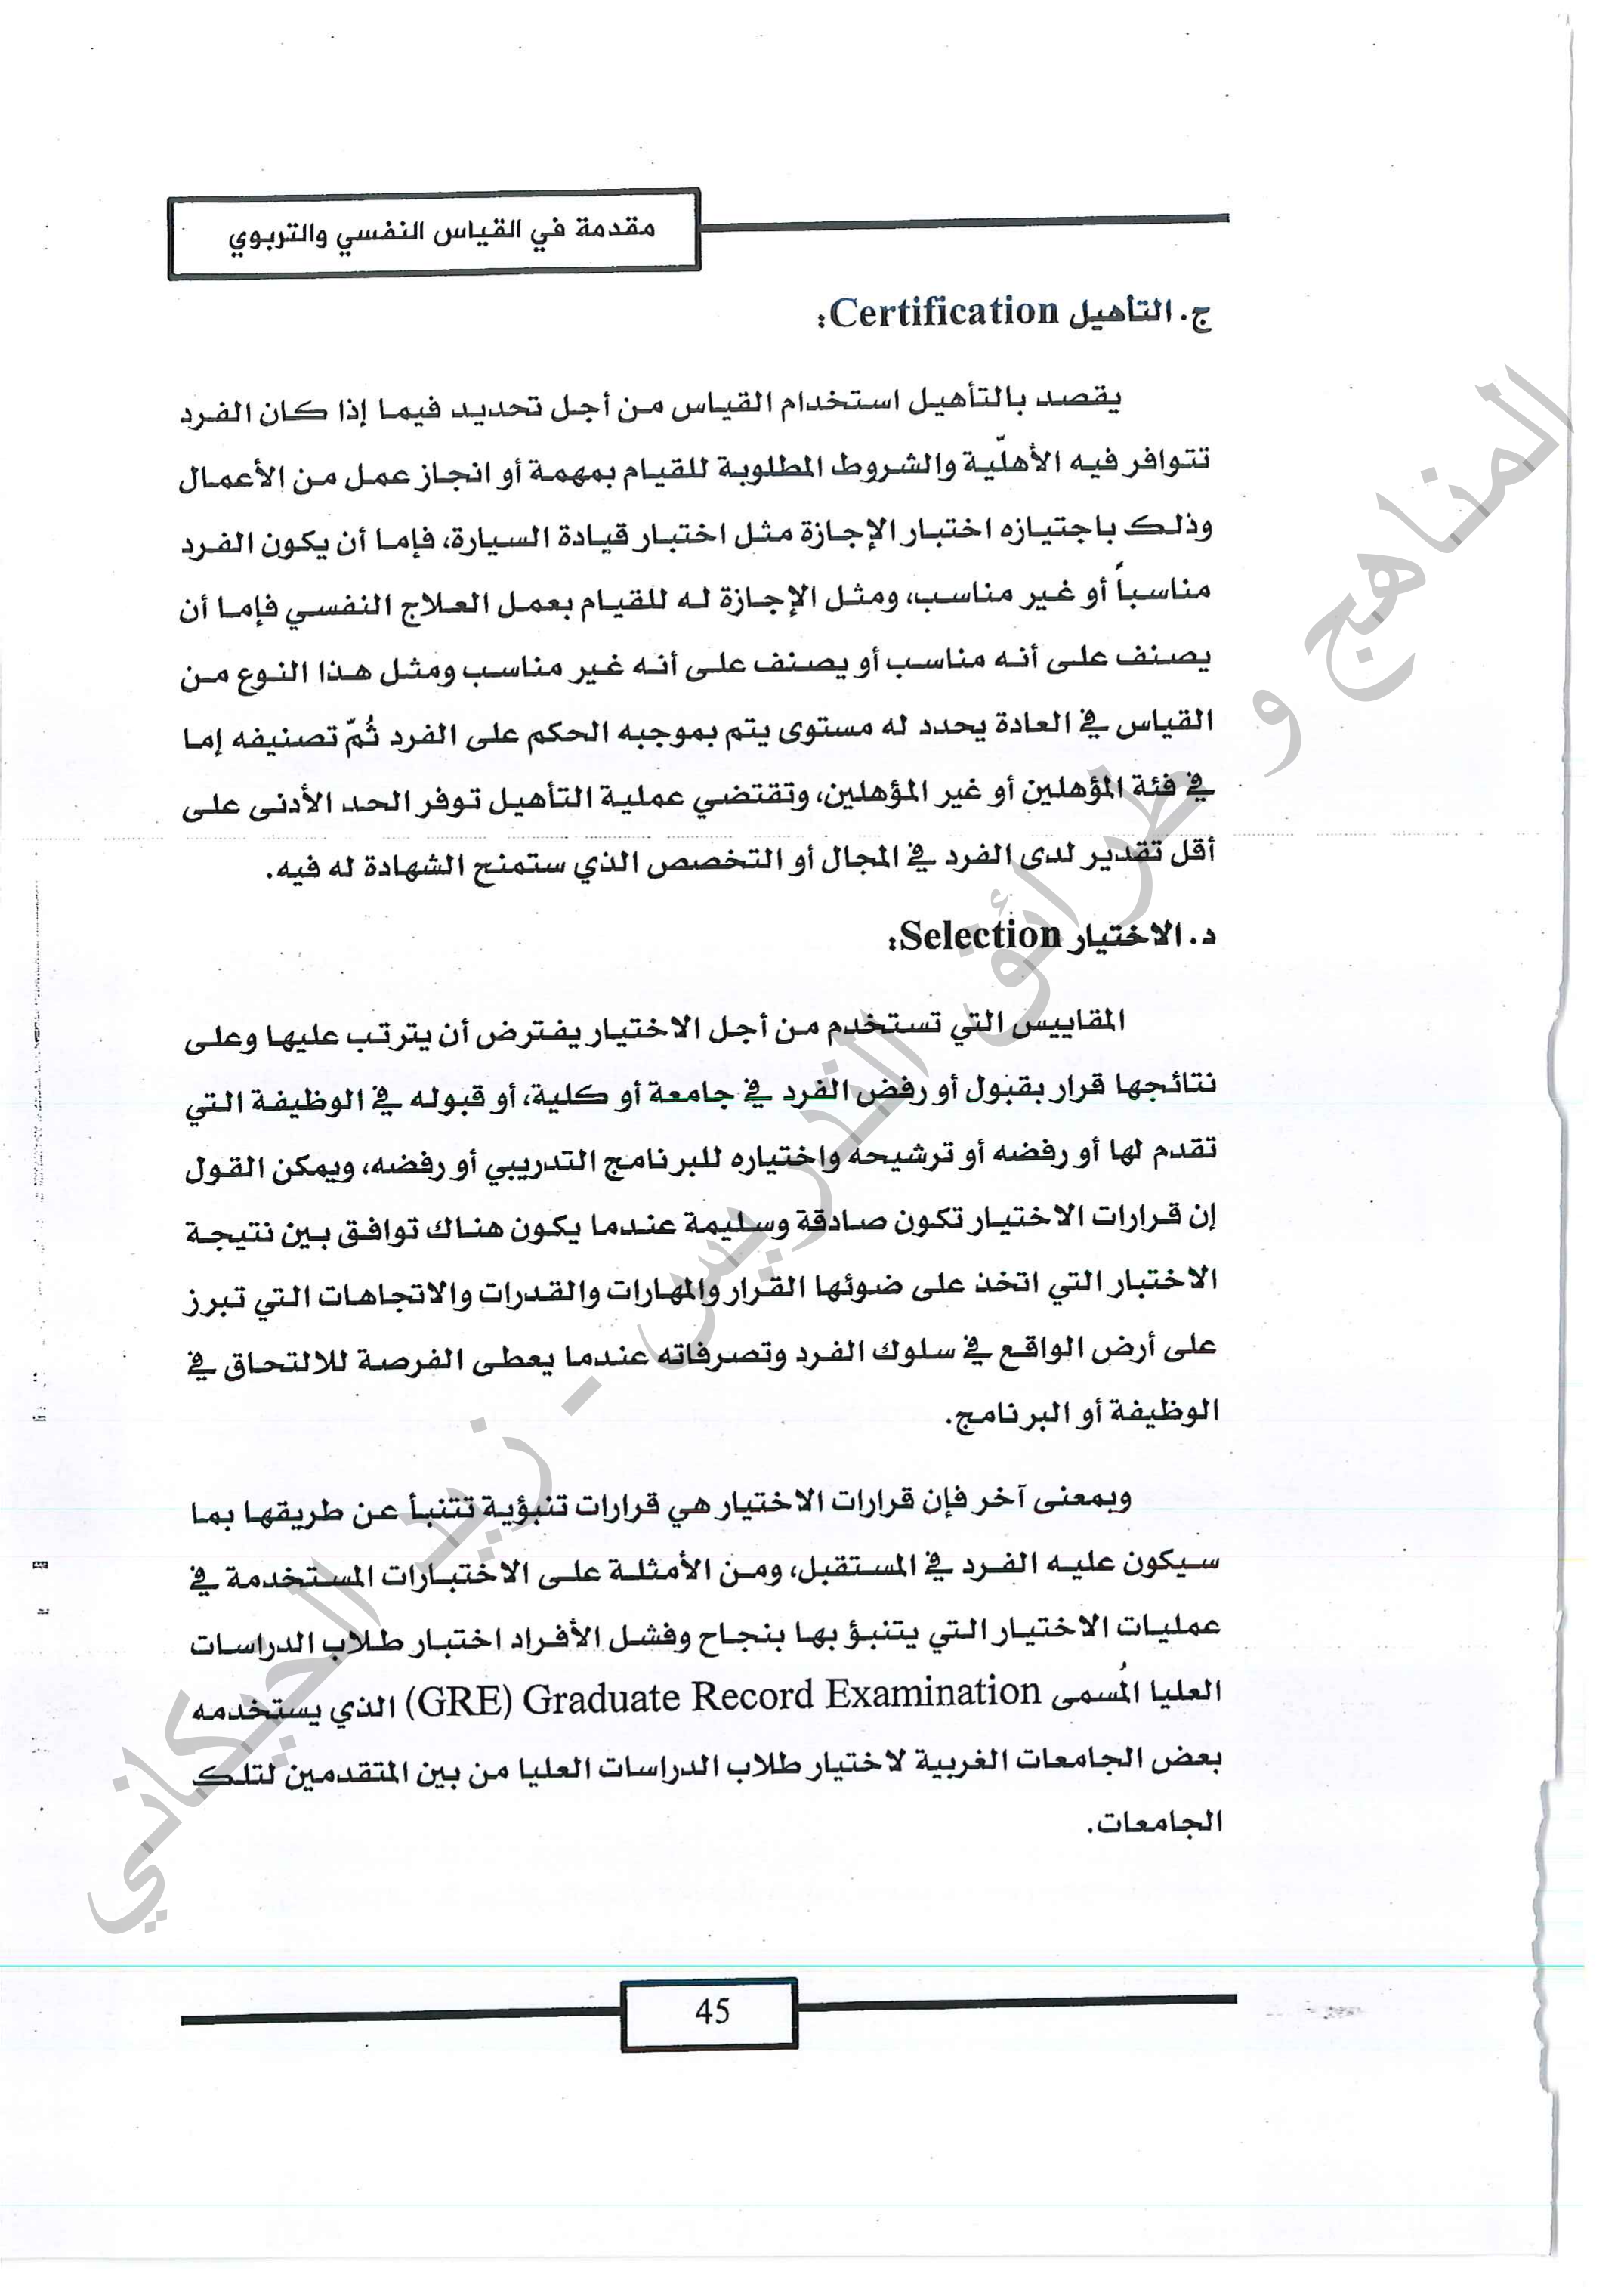 مقدمة في القياس النفسي والتربوي
ج. التأهيل Certification:
يقصد بالتأهيل استخدام القياس من أجل تحديد فيما إذا كان الفرد
تتوافر فيه الأهلّية والشروط المطلوبة للقيام بمهمة أو انجاز عمل من الأعمال
وذلك باجتيازه اختبار الإجازة مثل اختبار قيادة السيارة، فإما أن يكون الفرد
مناسباً أو غير مناسب، ومثل الإجازة له للقيام بعمل العلاج النفسي فإما أن
يصنف على أنه مناسب أو يصنف على أنه غير مناسب ومثل هذا النوع من
القياس في العادة يحدد له مستوى يتم بموجبه الحكم على الفرد ثُمّ تصنيفه إما
في فئة المؤهلين أو غير المؤهلين، وتقتضي عملية التأهيل توفر الحد الأدنى على
أقل تقدير لدى الفرد في المجال أو التخصص الذي ستمنح الشهادة له فيه.
د. الاختيار Selection:
المقاييس التي تستخدم من أجل الاختيار يفترض أن يترتب عليها وعلى
نتائجها قرار بقبول أو رفض الفرد في جامعة أو كلية، أو قبوله في الوظيفة التي
تقدم لها أو رفضه أو ترشيحه واختياره للبرنامج التدريبي أو رفضه، ويمكن القول
إن قرارات الاختيار تكون صادقة وسليمة عندما يكون هناك توافق بين نتيجة
الاختبار التي اتخذ على ضوئها القرار والمهارات والقدرات والاتجاهات التي تبرز
على أرض الواقع في سلوك الفرد وتصرفاته عندما يعطى الفرصة للالتحاق في
الوظيفة أو البرنامج.
وبمعنى آخر فإن قرارات الاختيار هي قرارات تنبؤية تتنبأ عن طريقها بما
سيكون عليه الفرد في المستقبل، ومن الأمثلة على الاختبارات المستخدمة في
عمليات الاختيار التي يتنبؤ بها بنجاح وفشل الأفراد اختبار طلاب الدراسات
العليا المُسمى Graduate Record Examination (GRE) الذي يستخدمه
بعض الجامعات الغربية لاختيار طلاب الدراسات العليا من بين المتقدمين لتلك
الجامعات.
45
المناهج و طرائق التدريس - زيد الحيكاني